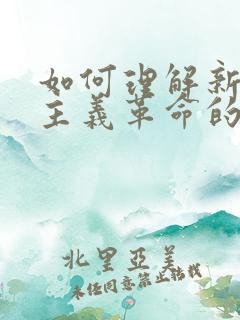 如何理解新
主義革命的
北里亞美
未经同意禁止转载